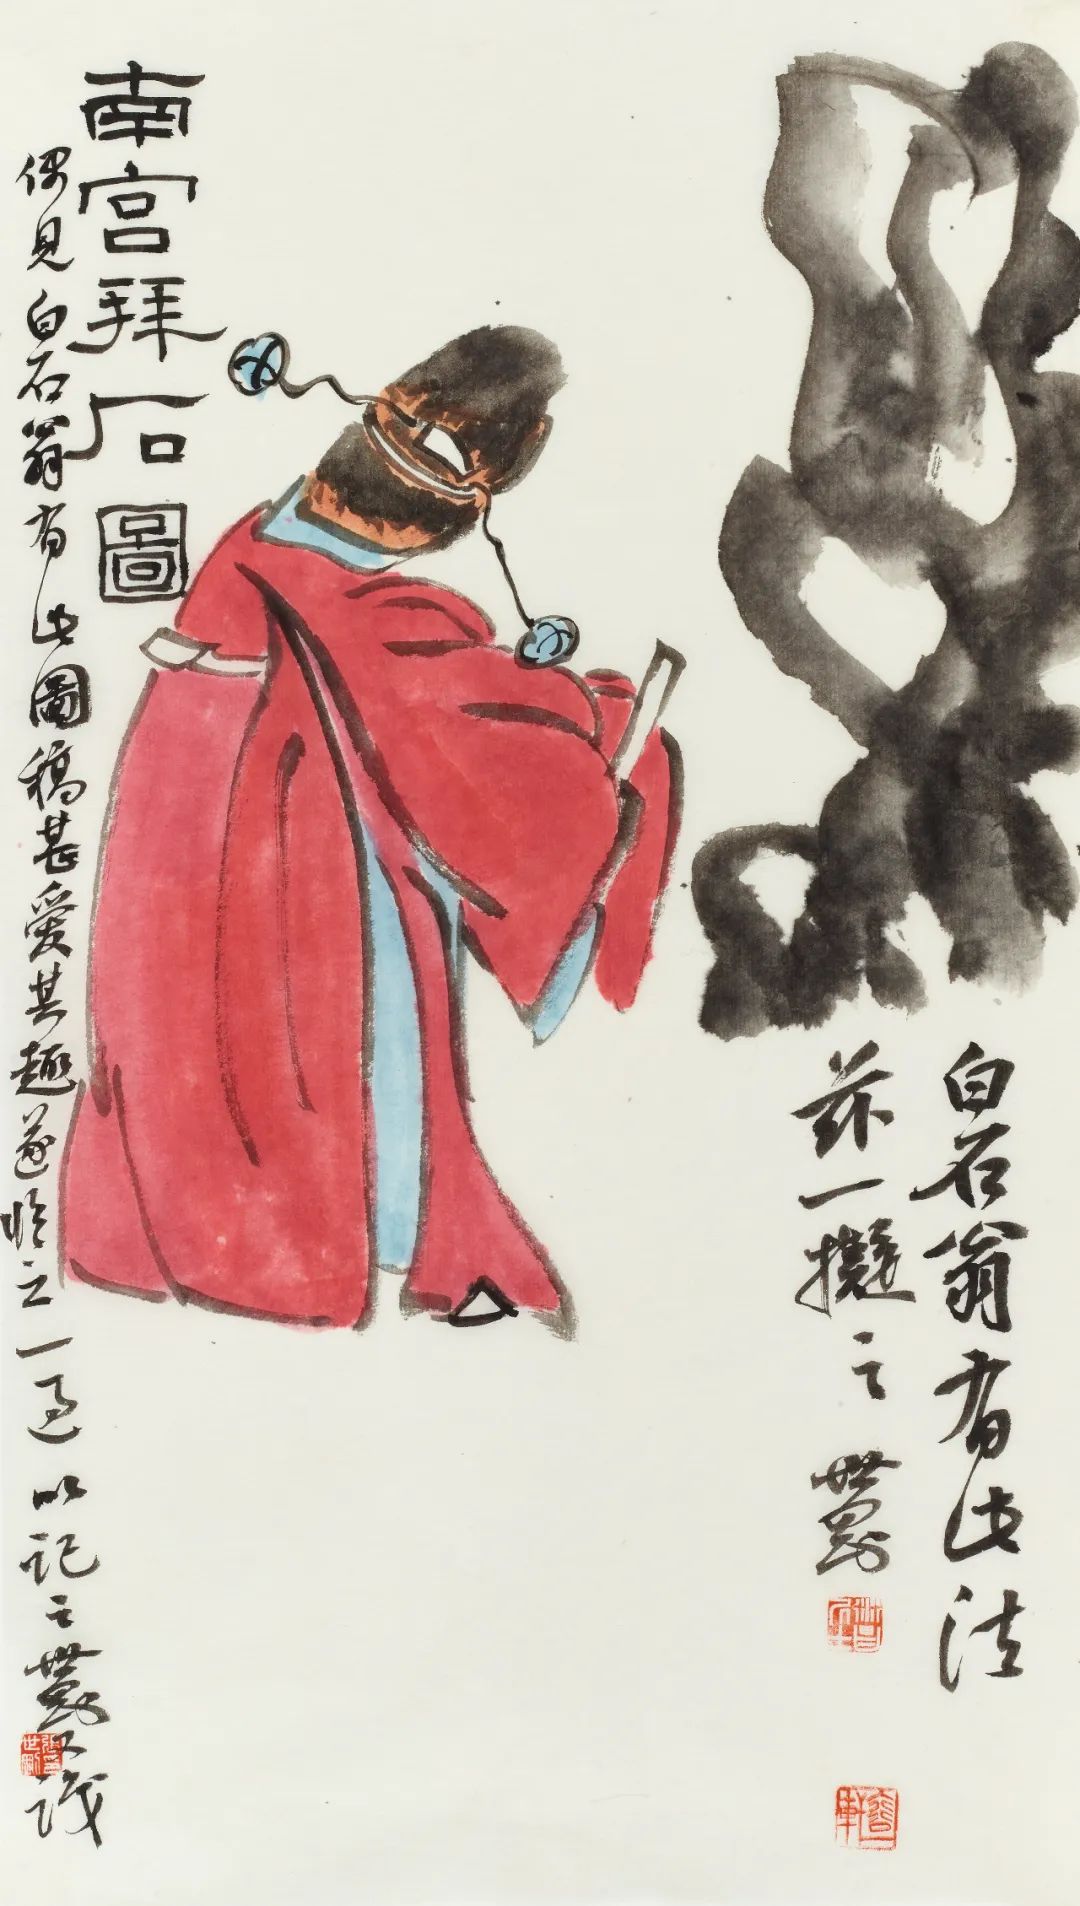 白石翁有此法
兹一擬之 世剛
南宫拜石圖
偶見白石翁有此圖稿甚愛其趣遂临之一過以記之 世剛又識